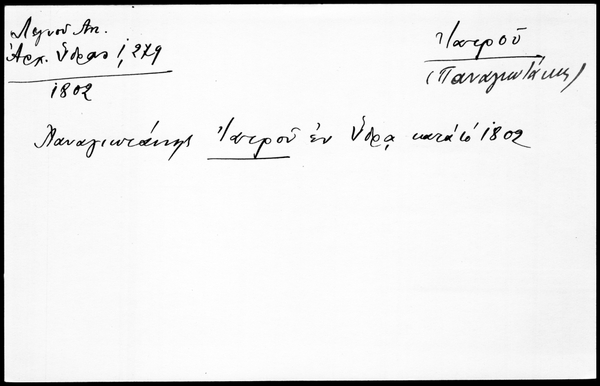 Λιγνοῦ Ἀν.
Ἀρχ. Ὕδρας 1, 279
1802
Ἰατροῦ
(Παναγιωτάκης)
Παναγιωτάκης Ἰατροῦ ἐν Ὕδρᾳ κατὰ τὸ 1802